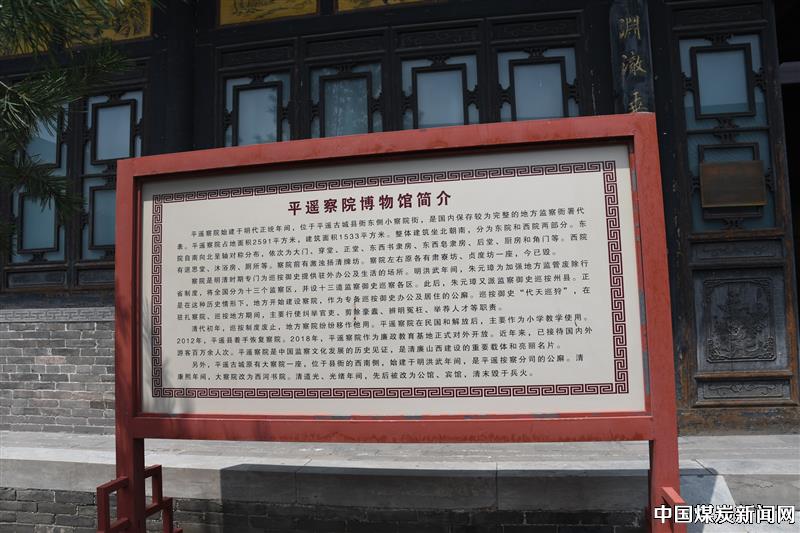 渊澈
平遥察院博物馆简介
平遥察院始建于明代正统年间，位于平遥古城县衙东侧小察院街，是国内保存较为完整的地方监察衙署代
表。平遥察院占地面积2591平方米，建筑面积1533平方米。整体建筑坐北朝南，分为东院和西院两部分。东
院自南向北呈轴对称分布，依次为大门、穿堂、正堂、东西书隶房、东西皂隶房、后堂、厨房和角门等。西院
有退思堂、沐浴房、厕所等。察院前有激浊扬清牌坊。察院左右原各有肃寮坊、贞度坊一座，今已毁。
察院是明清时期专门为巡按御史提供驻外办公及生活的场所。明洪武年间，朱元璋为加强地方监管废除行
省制度，将全国分为十三个监察区，并设十三道监察御史巡察各区。此后，朱元璋又派监察御史巡按州县。正
是在这种历史情形下，地方开始建设察院，作为专备巡按御史办公及居住的公廨。巡按御史“代天巡狩”，在
驻扎察院、巡按地方期间，主要行使纠举官吏、剪除豪蠹、辨明冤枉、举荐人才等职责。
清代初年，巡按制度废止，地方察院纷纷移作他用。平遥察院在民国和解放后，主要作为小学教学使用。
2012年，平遥县着手恢复察院。2018年，平遥察院作为廉政教育基地正式对外开放。近年来，已接待国内外
游客百万余人次。平遥察院是中国监察文化发展的历史见证，是清廉山西建设的重要载体和亮丽名片。
另外，平遥古城原有大察院一座，位于县衙的西南侧，始建于明洪武年间，是平遥按察分司的公廨。清
康熙年间，大察院改为西河书院。清道光、光绪年间，先后被改为公馆、宾馆，清末毁于兵火。
中国煤炭新闻网